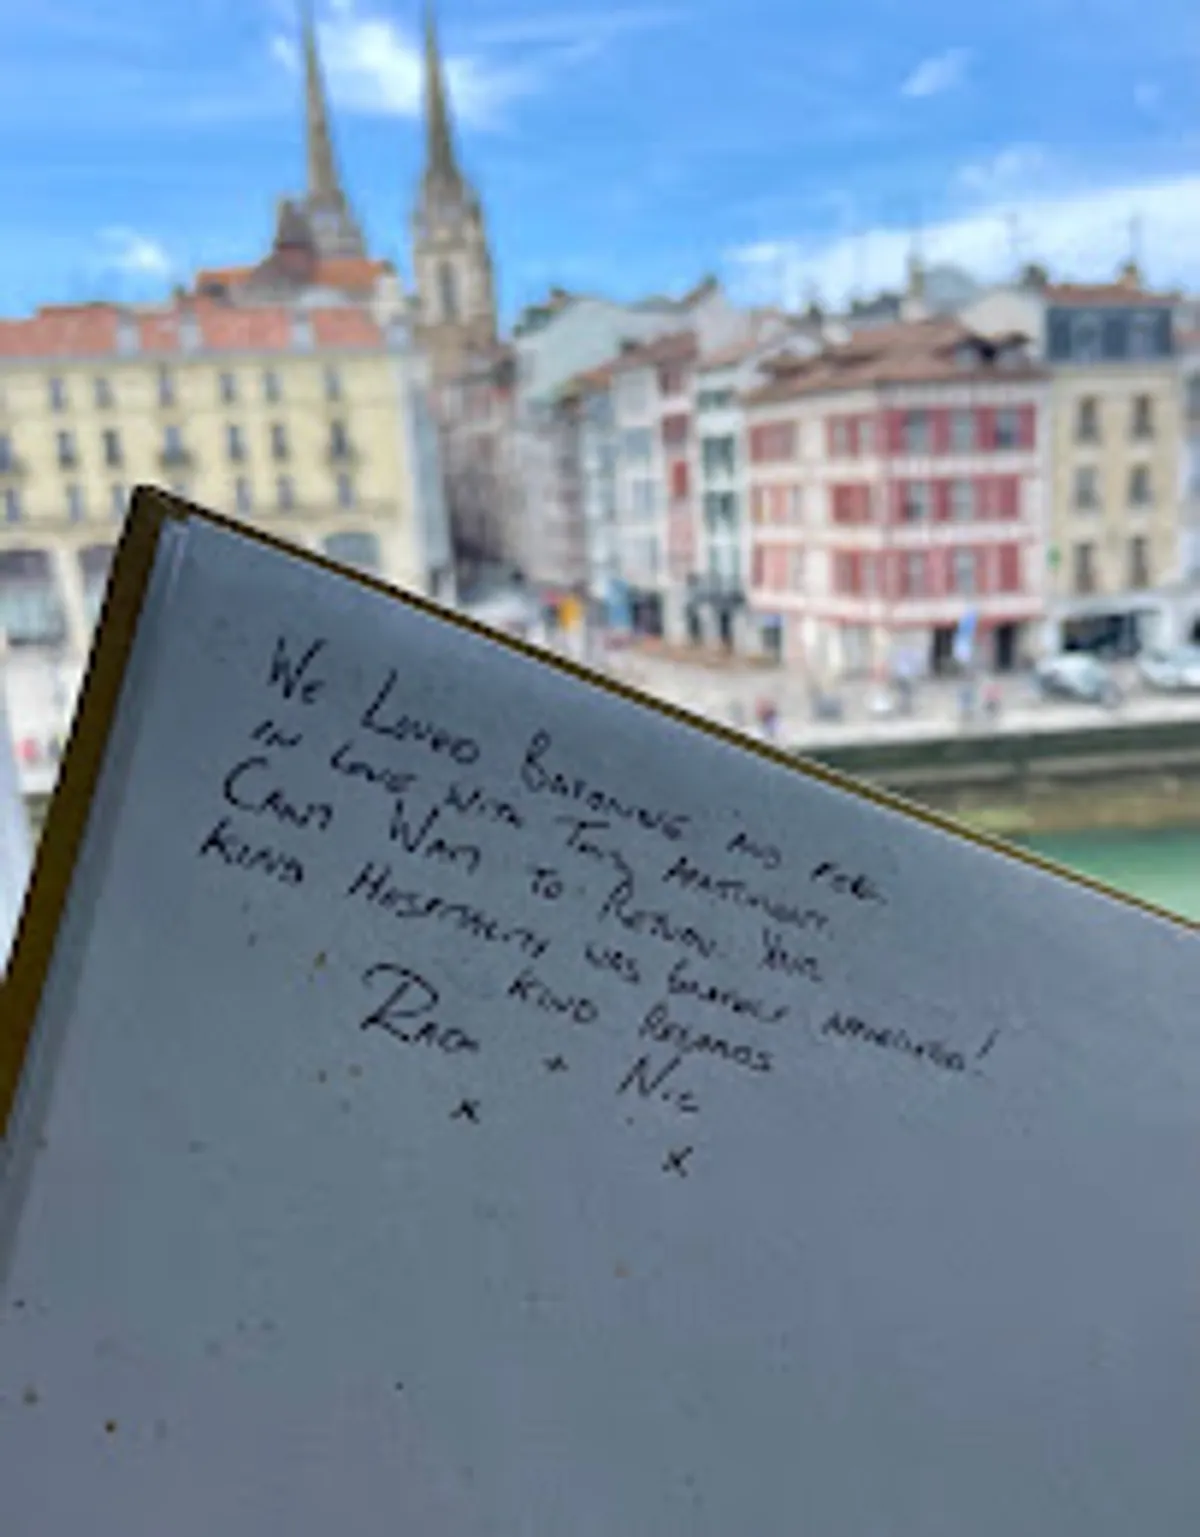 We Loved Bayonne and fell
in love with this apartment.
Cant Wait to Return. Your
Kind Hospitality was greatly appreciated!
Kind Regards
+ Nic
x
x